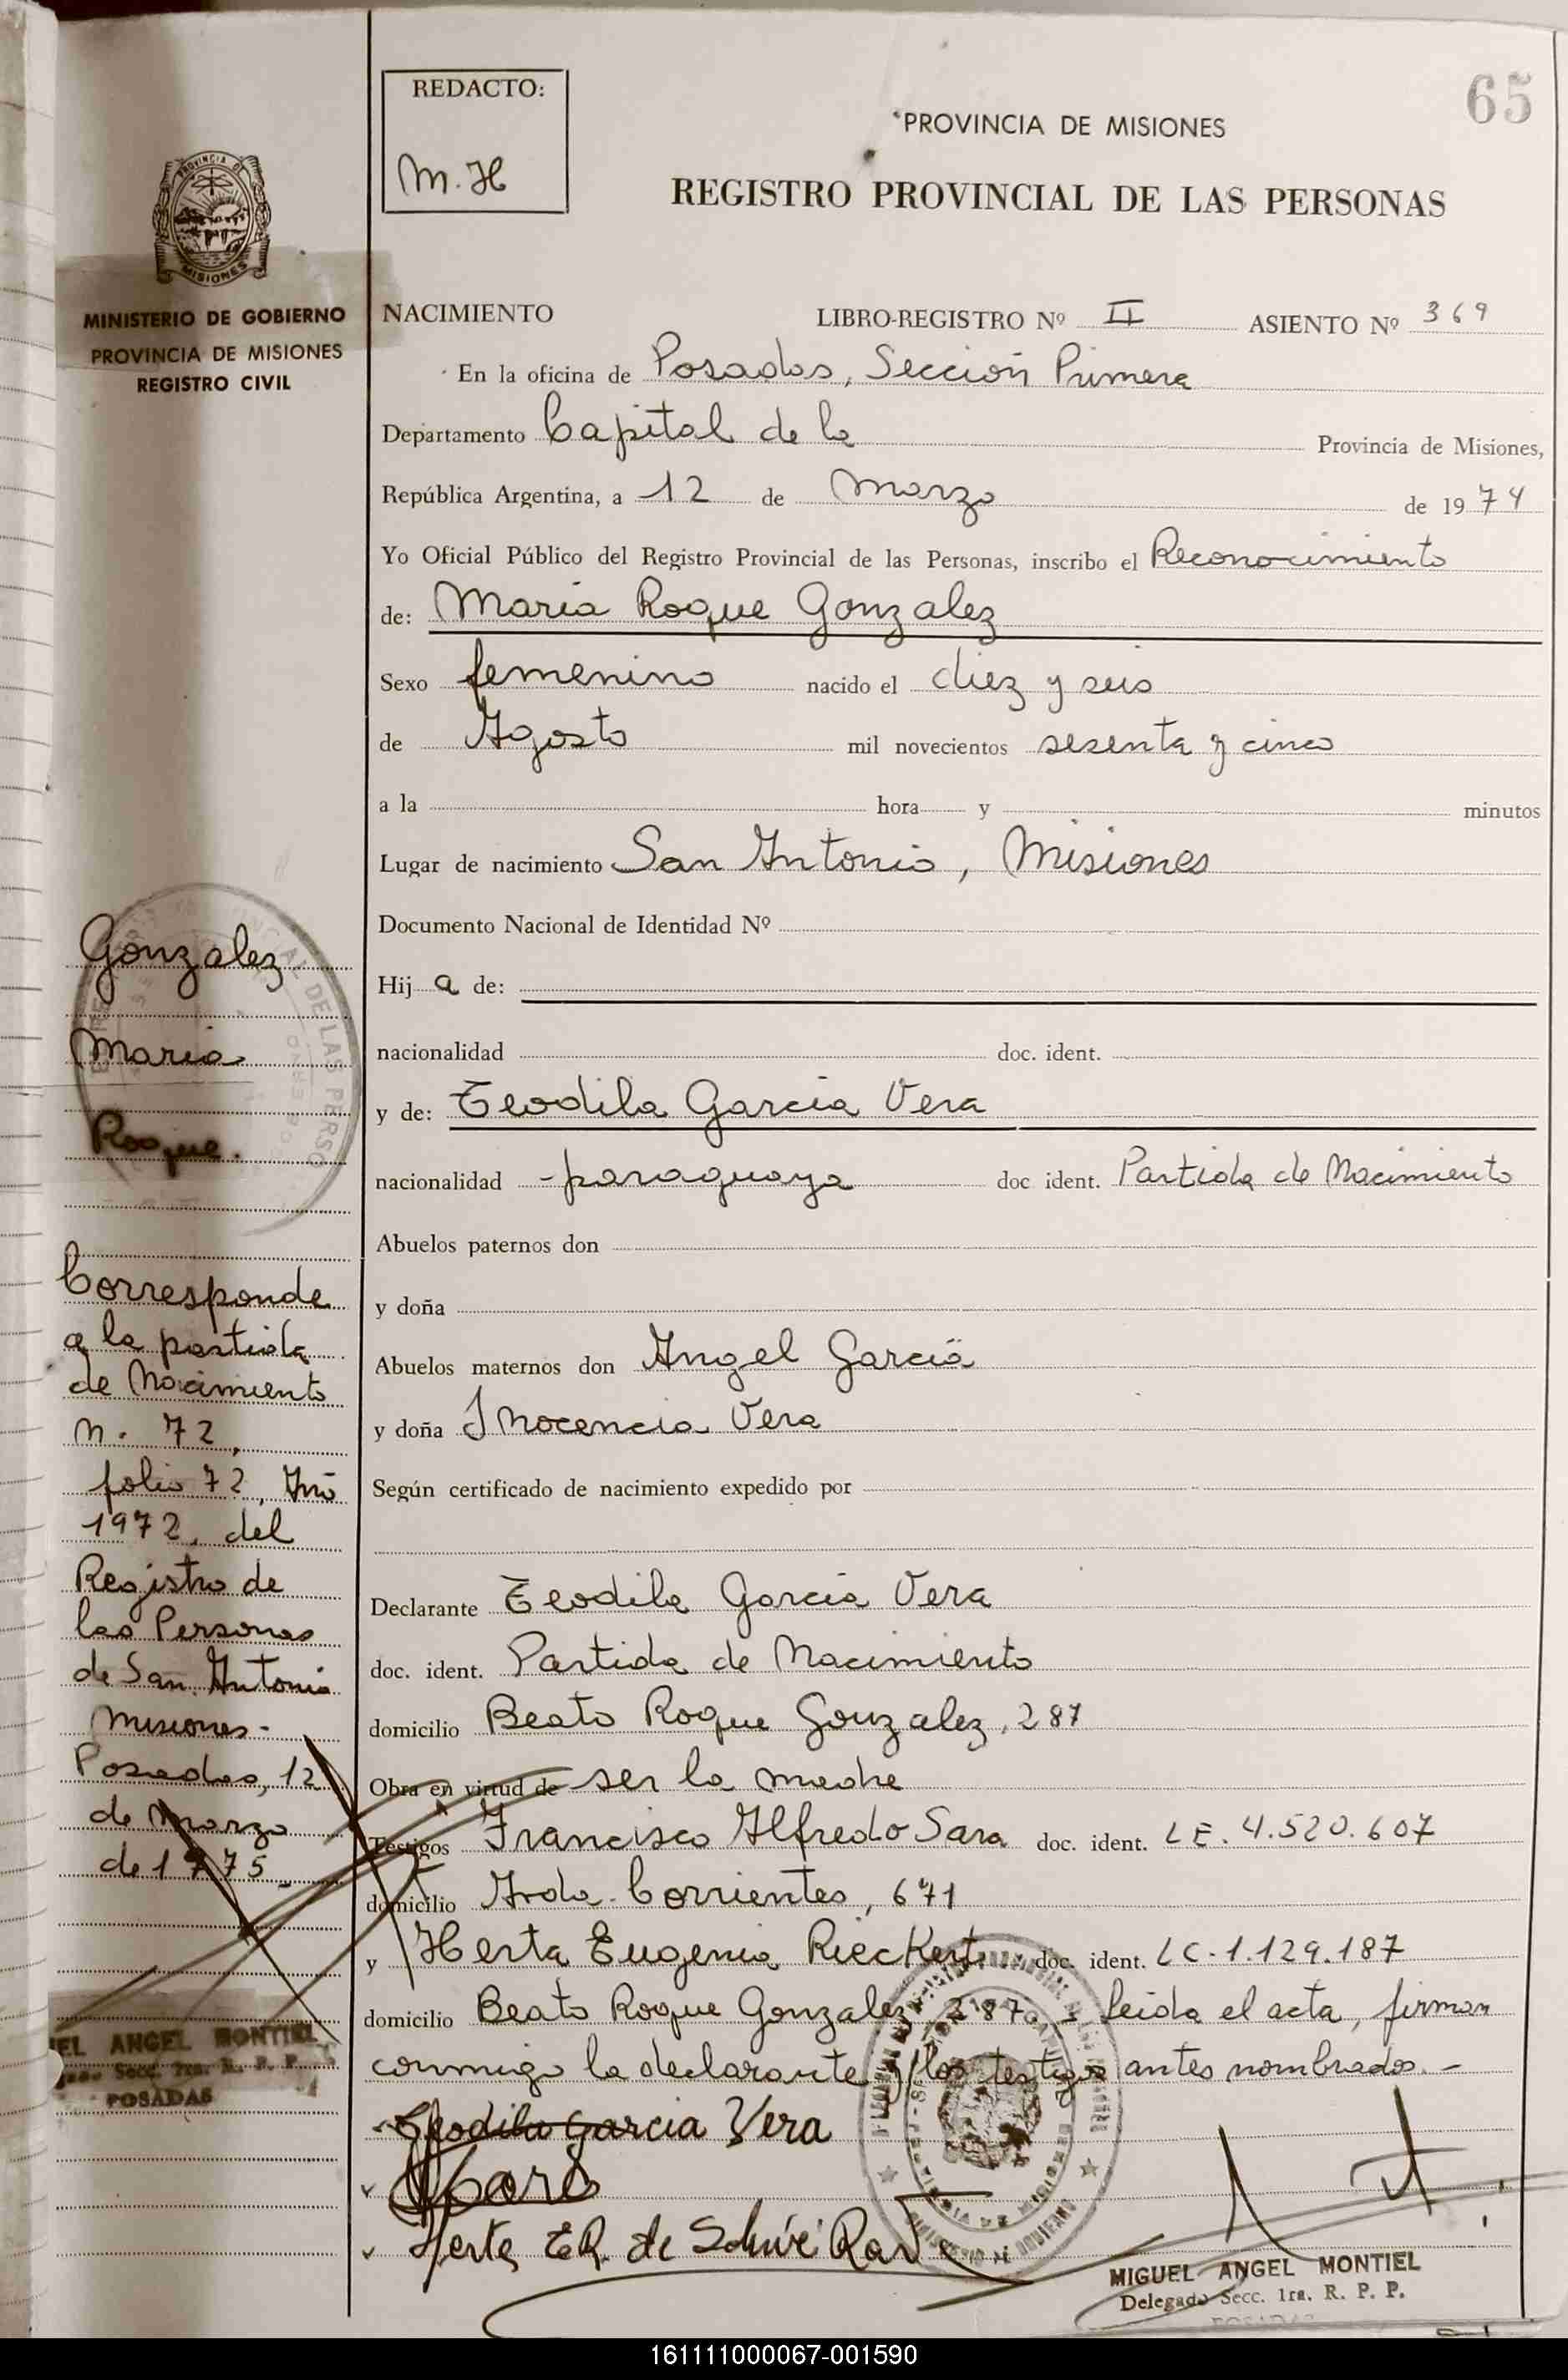 65
REDACTO:
M.H
PROVINCIA DE MISIONES
REGISTRO PROVINCIAL DE LAS PERSONAS
PROVINCIA DE
MISIONES
MINISTERIO DE GOBIERNO
PROVINCIA DE MISIONES
REGISTRO CIVIL
NACIMIENTO LIBRO-REGISTRO Nº II ASIENTO Nº 369
En la oficina de Posadas, Sección Primera
Departamento Capital de la Provincia de Misiones,
República Argentina, a 12 de Marzo de 1974
Yo Oficial Público del Registro Provincial de las Personas, inscribo el Reconocimiento
de: Maria Roque Gonzalez
Sexo femenino nacido el diez y seis
de Agosto mil novecientos sesenta y cinco
a la hora y minutos
Lugar de nacimiento San Antonio, Misiones
Documento Nacional de Identidad Nº
Hij a de:
nacionalidad doc. ident.
y de: Teodila Garcia Vera
nacionalidad paraguaya doc ident. Partida de Nacimiento
Abuelos paternos don
y doña
Abuelos maternos don Angel Garcia
y doña Inocencia Vera
Según certificado de nacimiento expedido por
Declarante Teodila Garcia Vera
doc. ident. Partida de Nacimiento
domicilio Beato Roque Gonzalez, 287
Obra en virtud de ser la madre
Testigos Francisco Alfredo Sara doc. ident. LE. 4.520.607
domicilio Avda. Corrientes, 671
y Herta Eugenia Rieckert doc. ident. LC.1.129.187
domicilio Beato Roque Gonzalez, 287. Leida el acta, firman
conmigo la declarante y los testigos antes nombrados.-
Teodila Garcia Vera
Herta E.R. de
MIGUEL ANGEL MONTIEL
Delegado Secc. 1ra. R. P. P.
POSADAS
Gonzalez
Maria
Roque.
Corresponde
a la partida
de Nacimiento
n. 72,
folio 72, Año
1972, del
Registro de
las Personas
de San Antonio
Misiones-
Posadas, 12
de Marzo
de 1975
EL ANGEL MONTIEL
Secc. 1ra. R. P. P.
POSADAS
161111000067-001590